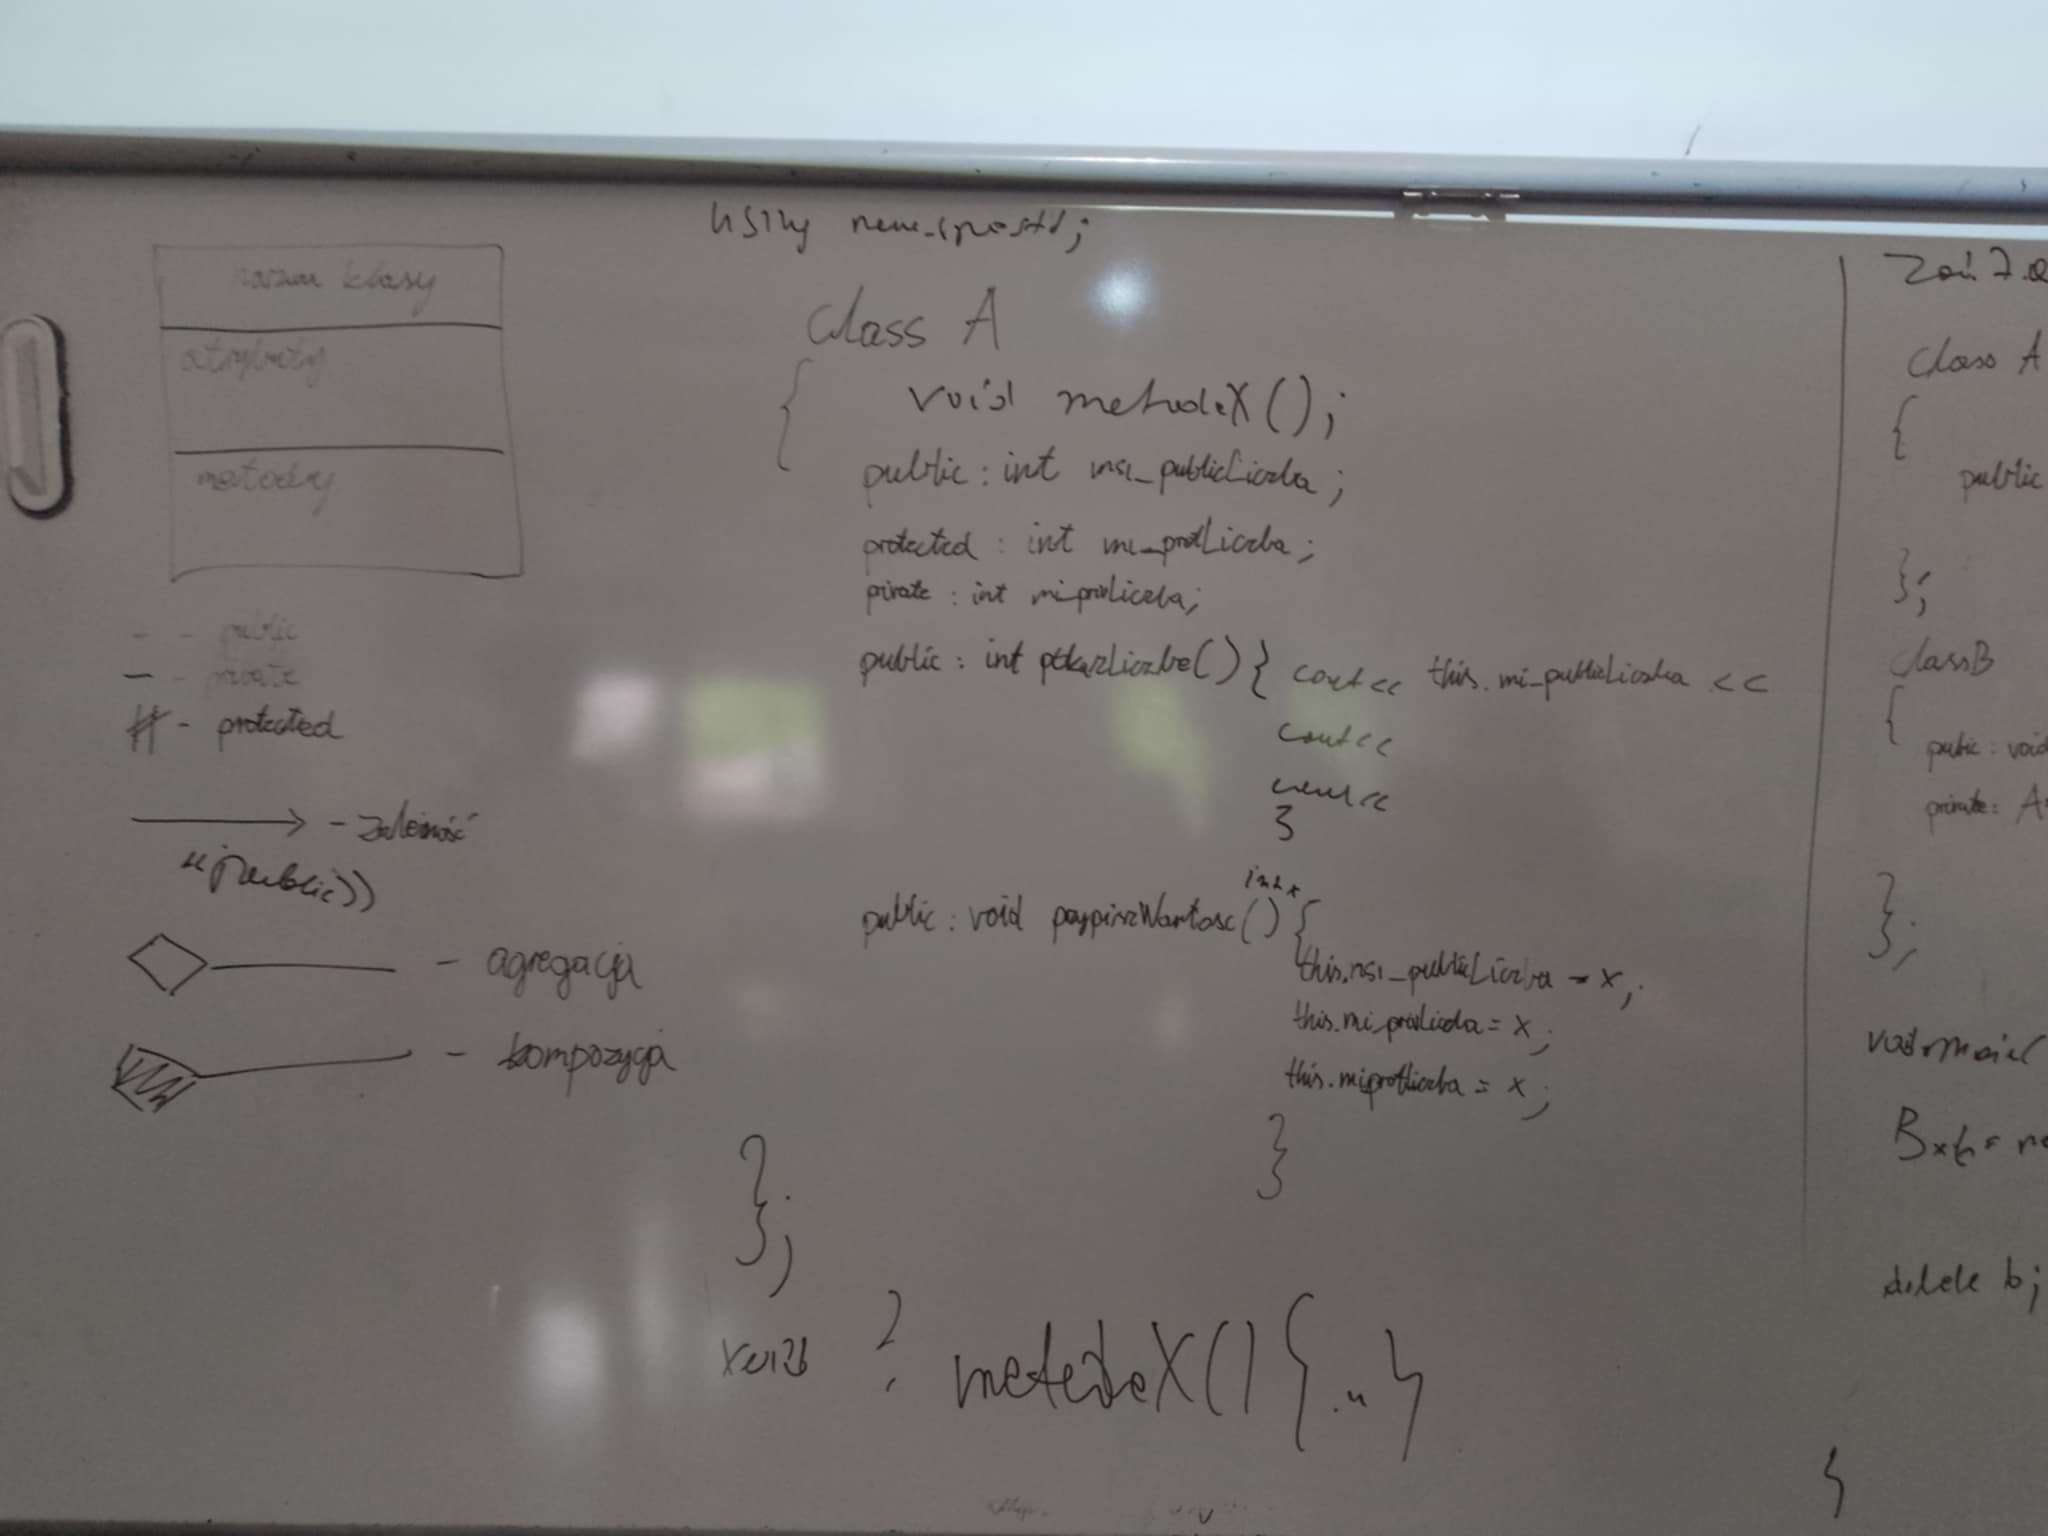 nazwa klasy
atrybuty
metody
- - public
- - private
# - protected
- zależność
«public»
- agregacja
- kompozycja
using
class A
{
void metodaX();
public : int mi_publicLiczba;
protected : int mi_protLiczba;
private : int mi_privLiczba;
public : int pokazLiczbe() { cout<< this.mi_publicLiczba <<
cout<<
cout<<
}
int x
public : void przypiszWartosc() {
this.mi_publicLiczba = x;
this.mi_privLiczba = x;
this.miprotLiczba = x;
}
};
void ? metodaX() {...}
class A
{
public
};
class B
{
public : void
private : A*
};
B*b=
delete b;
}